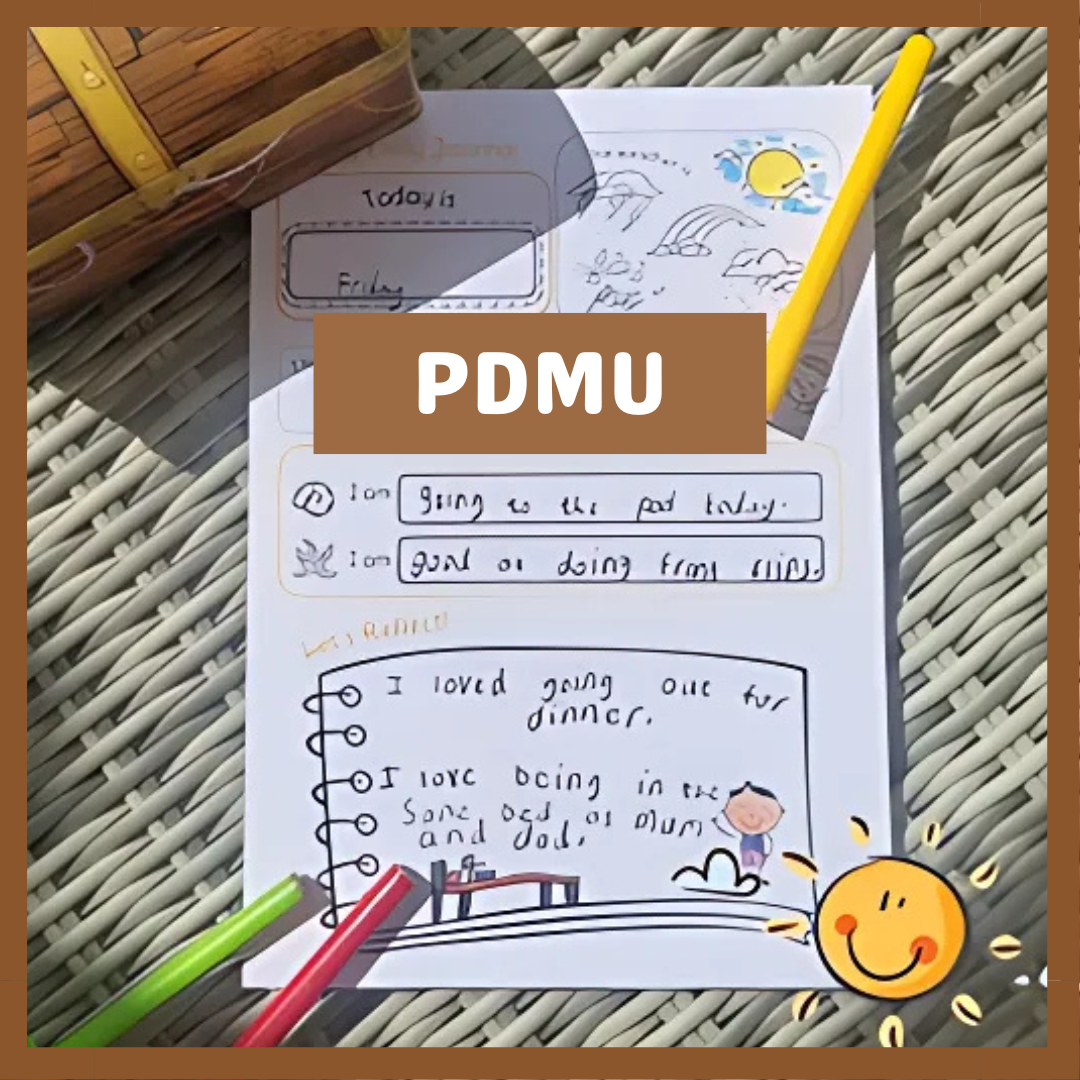 Today is
Friday
PDMU
I am going to the pool today.
I am good at doing front flips.
I loved going out for
dinner.
I love being in the
same bed as mum
and dad.